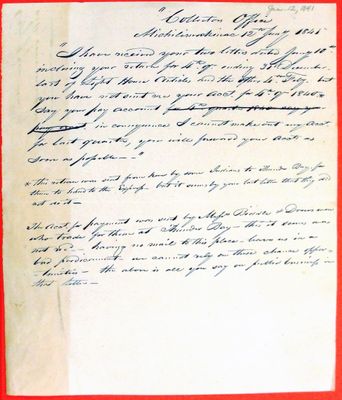 Jan. 12, 1841
"Collectors Office
Michilimackinac 12th Jany 1841
"I have received your two letters dated Jany 10th
inclosing your return for 4th qr. ending 31st December
last of Light House Articles and the other 4th Feby. but
you have not sent me your acct. for 4th qr. of 1840 *
say your pay account
in consequence I cannot make out my acct.
for last quarter, you will forward your accts as
soon as possible — "
* this return was sent from here by some Indians to Thunder Bay for
them to hand to the Express but it seems by your last letter that they did
not do it —
The acct for payment was sent by Messrs &
who trade for them at Thunder Bay — this it seems was
not recd — having no mail to this place — leaves us in a
bad predicament we cannot rely on these chance oppor
-tunities — the above is all you say on public business in
that letter —